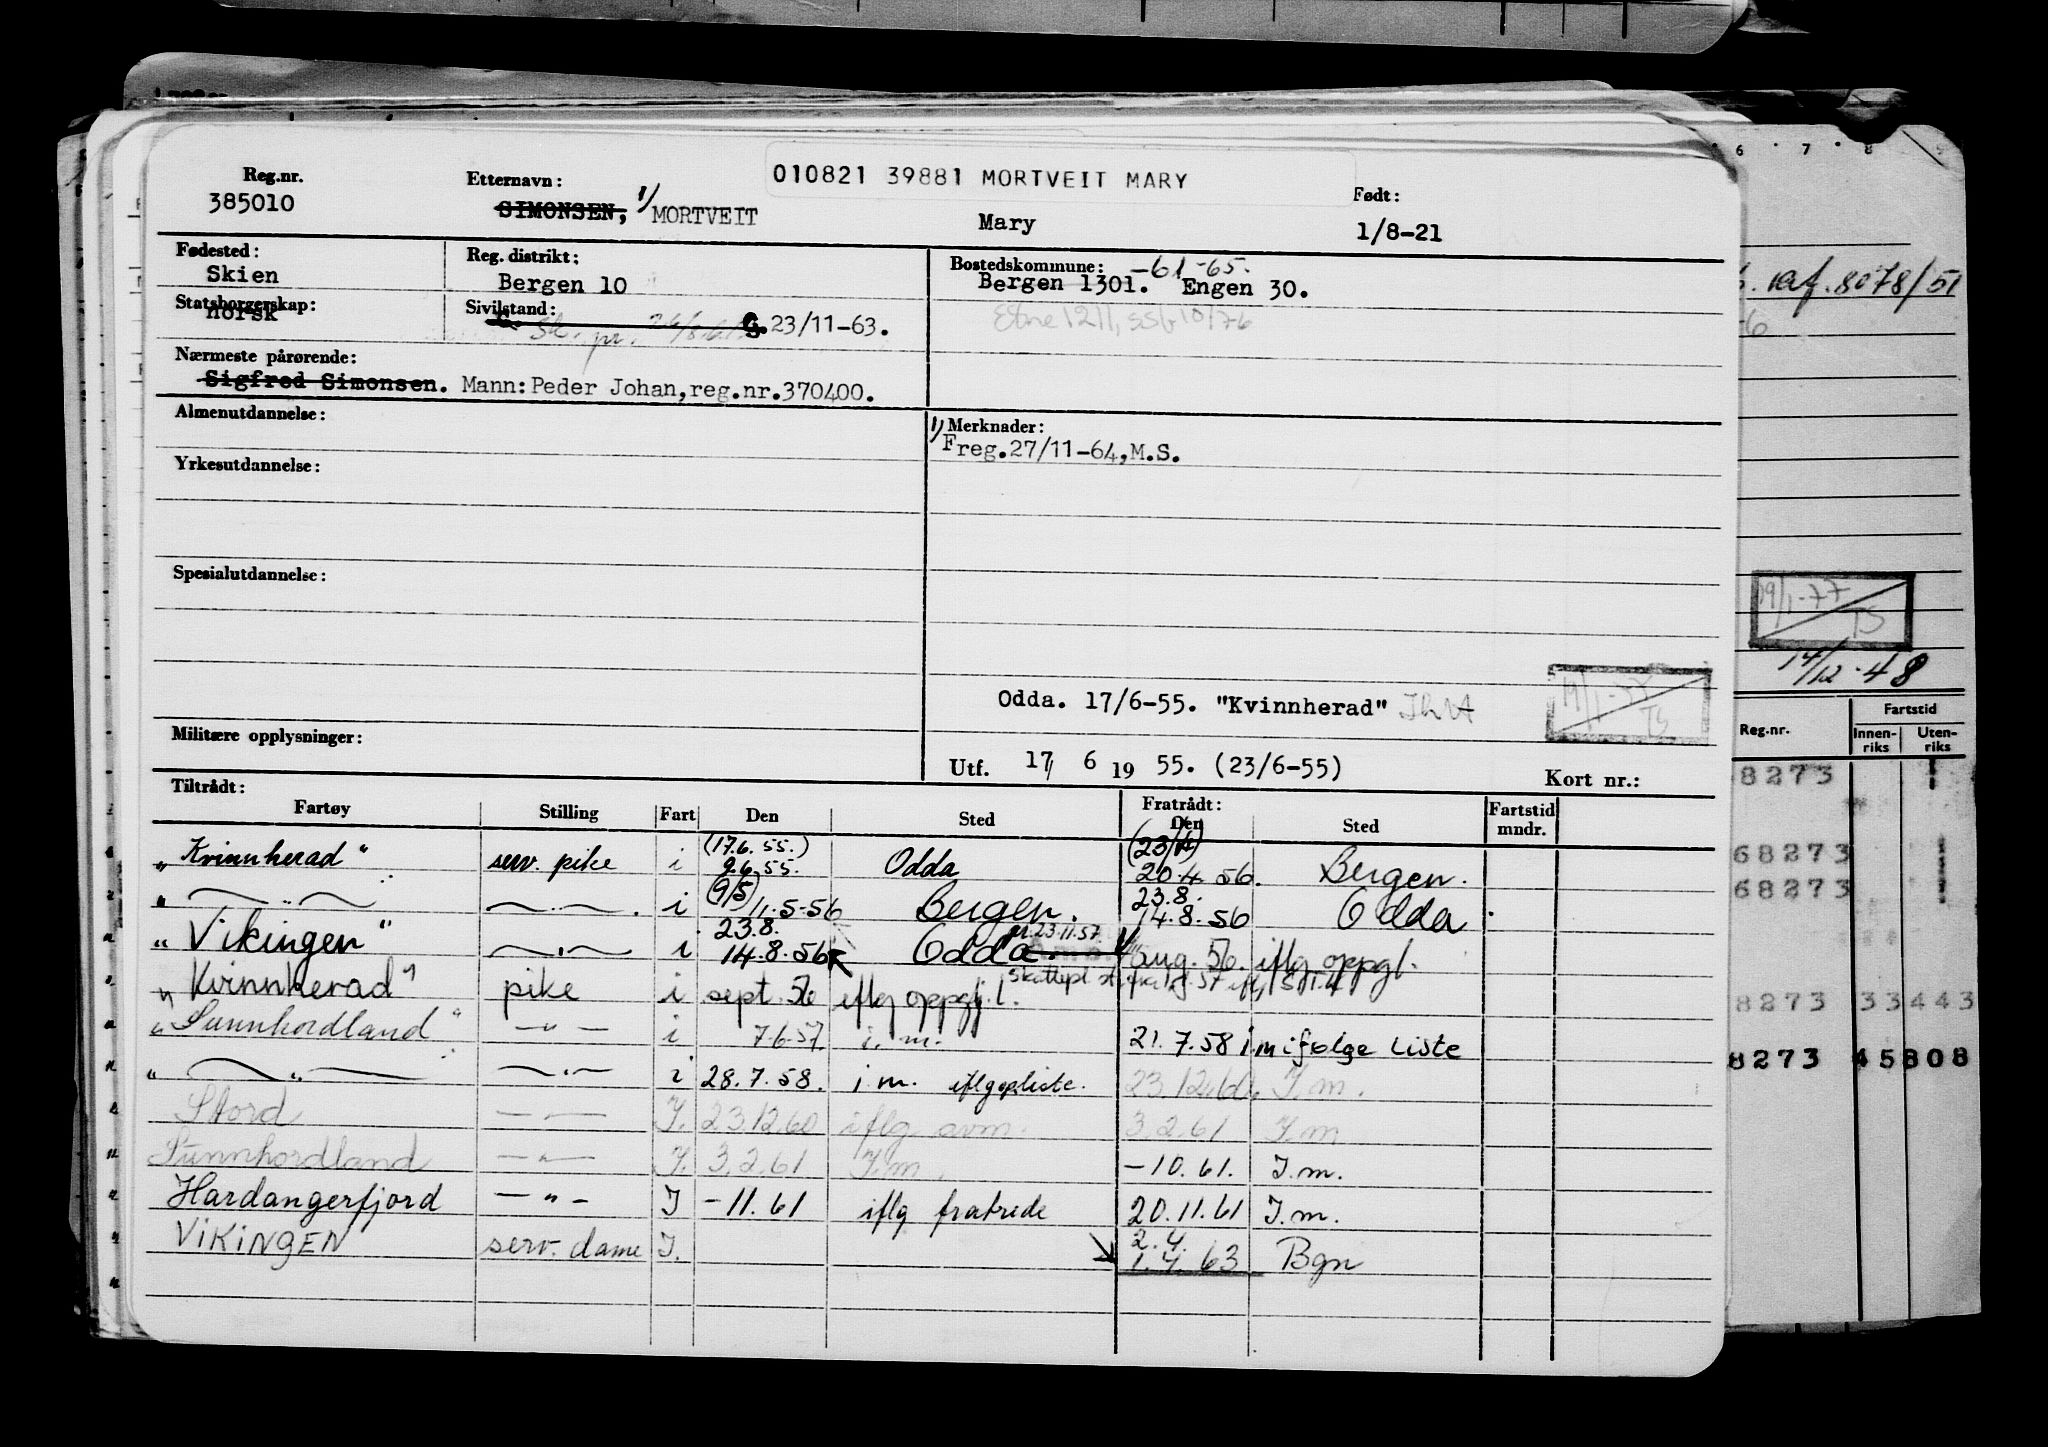 010821 39881 MORTVEIT MARY
Reg.nr. Etternavn: Født:
385010 SIMONSEN, 1/ MORTVEIT Mary 1/8-21
Fødested: Reg. distrikt: Bostedskommune: -61-65.
Skien Bergen 10 Bergen 1301. Engen 30.
Statsborgerskap: Sivilstand:
norsk G. 23/11-63.
Etne 1211, SSB 10/76
Nærmeste pårørende:
Sigfred Simonsen. Mann: Peder Johan, reg.nr.370400.
Almenutdannelse: 1/ Merknader:
Freg.27/11-64, M.S.
Yrkesutdannelse:
Spesialutdannelse:
Odda. 17/6-55. "Kvinnherad"
Militære opplysninger:
Utf. 17/ 6 19 55. (23/6-55) Kort nr.:
Tiltrådt: Fratrådt:
Fartøy Stilling Fart Den Sted Den Sted Fartstid mndr.
(17.6.55.) (23/4)
"Kvinnherad" serv. pike i 9.6.55. Odda 20.4.56. Bergen.
(9/5) 23.8.
" —..— —.—. i 11.5-56 Bergen. 14.8.56 Odda.
23.8. 23.11.57
"Vikingen" —.— i 14.8.56 Odda aug. 56. iflg oppgl.
"Kvinnherad" pike i sept. 56 iflg oppgj. l.
"Sunnhordland" —"— i 7.6.57 i.m. 21.7.58 i.m ifølge liste
" —..— —.— i 28.7.58. i.m. iflg opliste. 23.12.60. I.m.
Stord — — I. 23.12.60 iflg avm. 3.2.61 I.m
Sunnhordland —"— I. 3.2.61 I.m. -10.61. I.m.
Hardangerfjord —"— I -11.61 iflg fratrede 20.11.61 I.m.
2.4.
VIKINGEN serv. dame I. 1.4.63 Bgn
6 7 8 9
ref. 8078/51
19/1-77
TS
14/12-48
Reg.nr. Fartstid
Innenriks Utenriks
8273
68273
68273
8273 33443
8273 45808